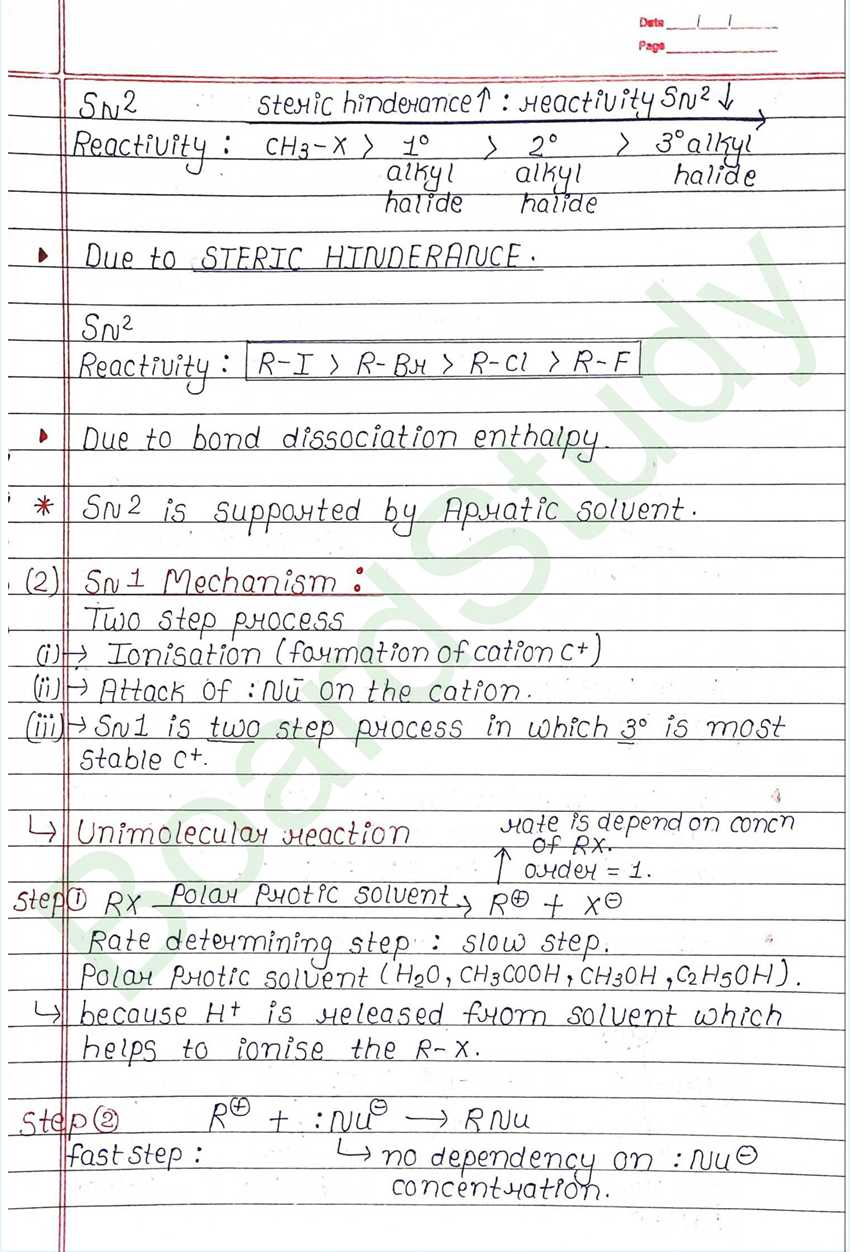 Date __/__/__
Page
SN2 Steric hinderance↑ : reactivity SN2 ↓
Reactivity : CH3-X > 1° > 2° > 3° alkyl
alkyl alkyl halide
halide halide
Due to STERIC HINDERANCE.
SN2
Reactivity : R-I > R-Br > R-Cl > R-F
Due to bond dissociation enthalpy.
* SN2 is supported by Apratic solvent.
(2) SN1 Mechanism :
Two step process
(i)→ Ionisation (formation of cation C+)
(ii)→ Attack of :Nū on the cation.
(iii)→ SN1 is two step process in which 3° is most
stable C+.
↳ Unimolecular reaction
rate is depend on concn
of RX.
↑ order = 1.
Step① RX Polar Protic solvent→ R⊕ + X⊖
Rate determining step : slow step.
Polar Protic solvent (H2O, CH3COOH, CH3OH, C2H5OH).
↳ because H+ is released from solvent which
helps to ionise the R-X.
Step② R⊕ + :Nu⊖ → RNu
fast step : ↳ no dependency on :Nu⊖
concentration.
BoardStudy